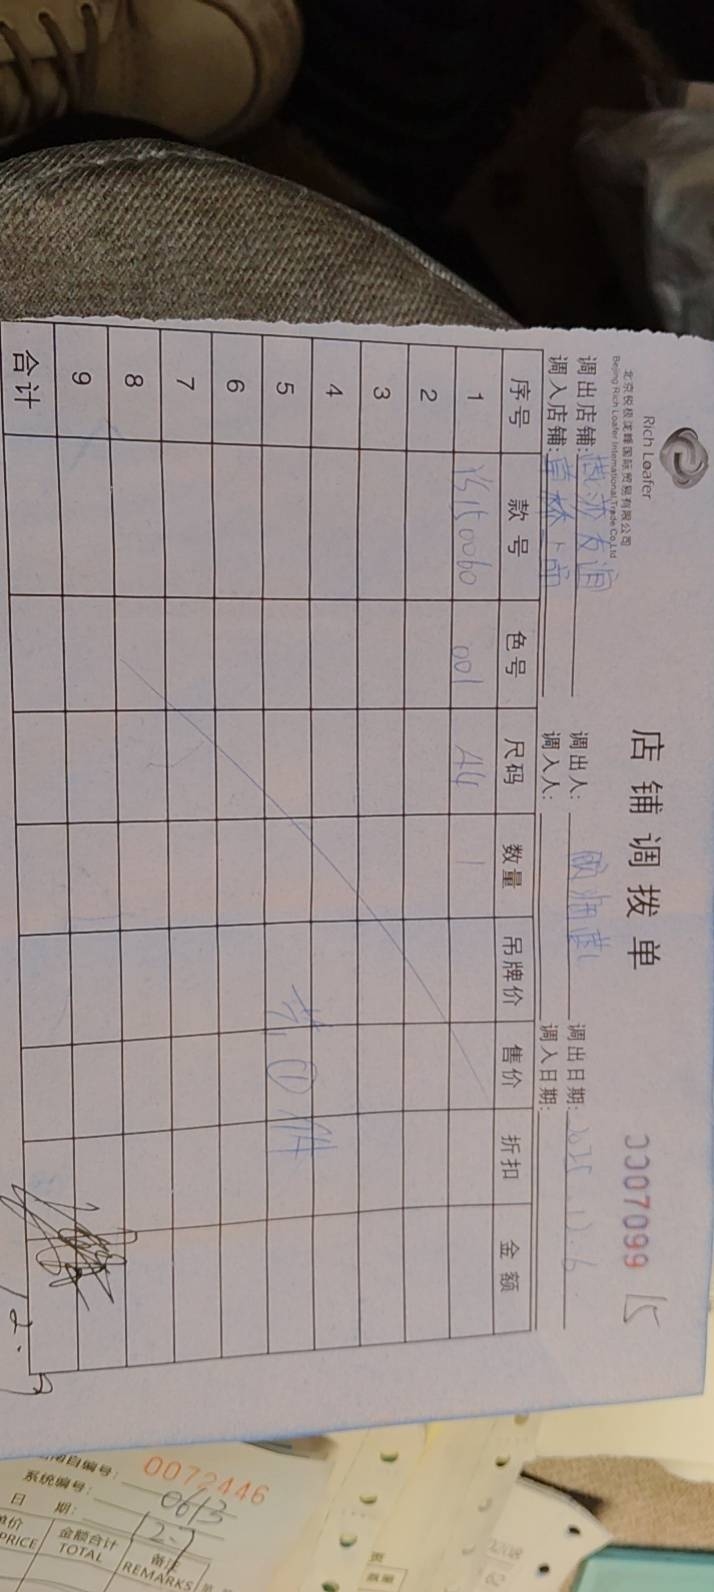 Rich Loafer
北京锐极洛蜂国际贸易有限公司
Beijing Rich Loafer International Trade Co.Ltd
店铺调拨单
0007099 15
调出店铺: 友谊 调出人: 调出日期: 2025.12.6
调入店铺: 调入人: 调入日期:
序号 款号 色号 尺码 数量 吊牌价 售价 折扣 金额
1 001 A4 1
2
3
4
5 共 ① 件
6
7
8
9
合计
自编号: 0072446
系统编号: 0613
日 期: 12.7
PRICE
金额合计 TOTAL
备注 REMARKS